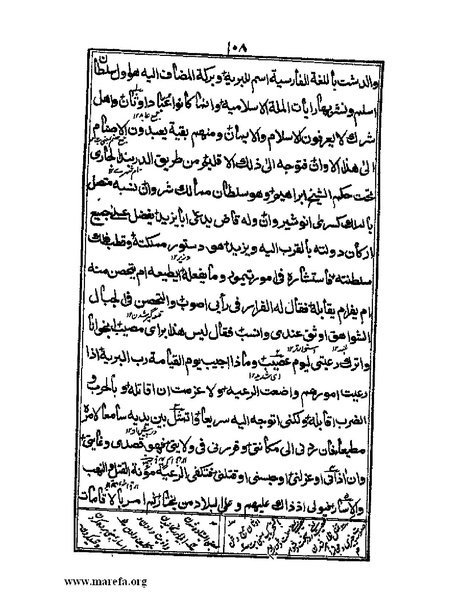 ١٠٨
والدشت باللغة الفارسية اسم للبرية وبركة المضاف اليه هو اول سلطان
اسلم ونشر بها رايات الملة الاسلامية وانما كانوا عباد اوثان واهل
شرك لا يعرفون الاسلام والايمان ومنهم بقية يعبدون الاصنام
الى هذا الاوان فتوجه الى ذلك الاقليم من طريق الدربند الجاري
تحت حكم الشيخ ابراهيم وهو سلطان ممالك شروان نسبه متصل
بالملك كسرى انوشيروان وله قاض يدعى ابا يزيد يفضل على جميع
اركان دولته بالقرب اليه ويزيد هو دستور مملكته وقطب فلك
سلطنته فاستشاره في امور تيمور وما يفعله ايطيعه ام يتحصن منه
ام يفر ام يقابله فقال له الفرار في رأيي اصوب والتحصن في الجبال
الشواهق اوثق عندي وانسب فقال ليس هذا براى مصيب انجو انا
واترك رعيتي ليوم عصيب وماذا اجيب يوم القيامة رب البرية اذا
رعيت امورهم واضعت الرعية ولا عزمت ان اقاتله وبالحرب و
الضرب اقابله ولكني اتوجه اليه سريعا واتمثل بين يديه سامعا لامره
مطيعا فان ردني الى مكانتي وقررني في ولايتي فهو قصدي وغايتي
وان اذاني او عزلني او حبسني او قتلني فتكفى الرعية مؤنة القتل والنهب
والاسار فيولي اذ ذاك عليهم وعلى البلاد من يختار ثم امر بالاقامات
www.marefa.org